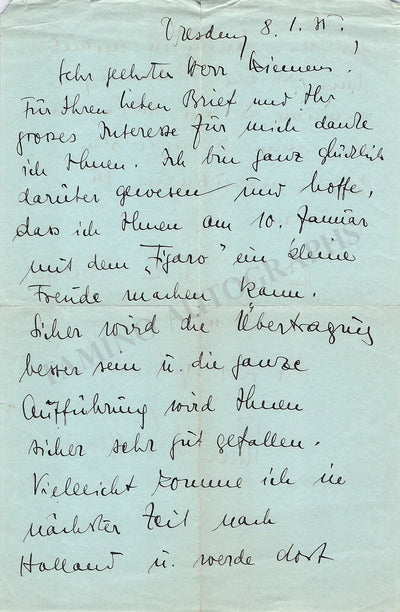 Dresden, 8. 1. 35.
Sehr geehrter Herr Diemens,
Für Ihren lieben Brief und Ihr
grosses Interesse für mich danke
ich Ihnen. Ich bin ganz glücklich
darüber gewesen und hoffe,
dass ich Ihnen am 10. Januar
mit dem „Figaro" ein kleine
Freude machen kann.
Sicher wird die Übertragung
besser sein u. die ganze
Aufführung wird Ihnen
sicher sehr gut gefallen.
Vielleicht komme ich in
nächster Zeit nach
Holland u. werde dort
TAMINO AUTOGRAPHS